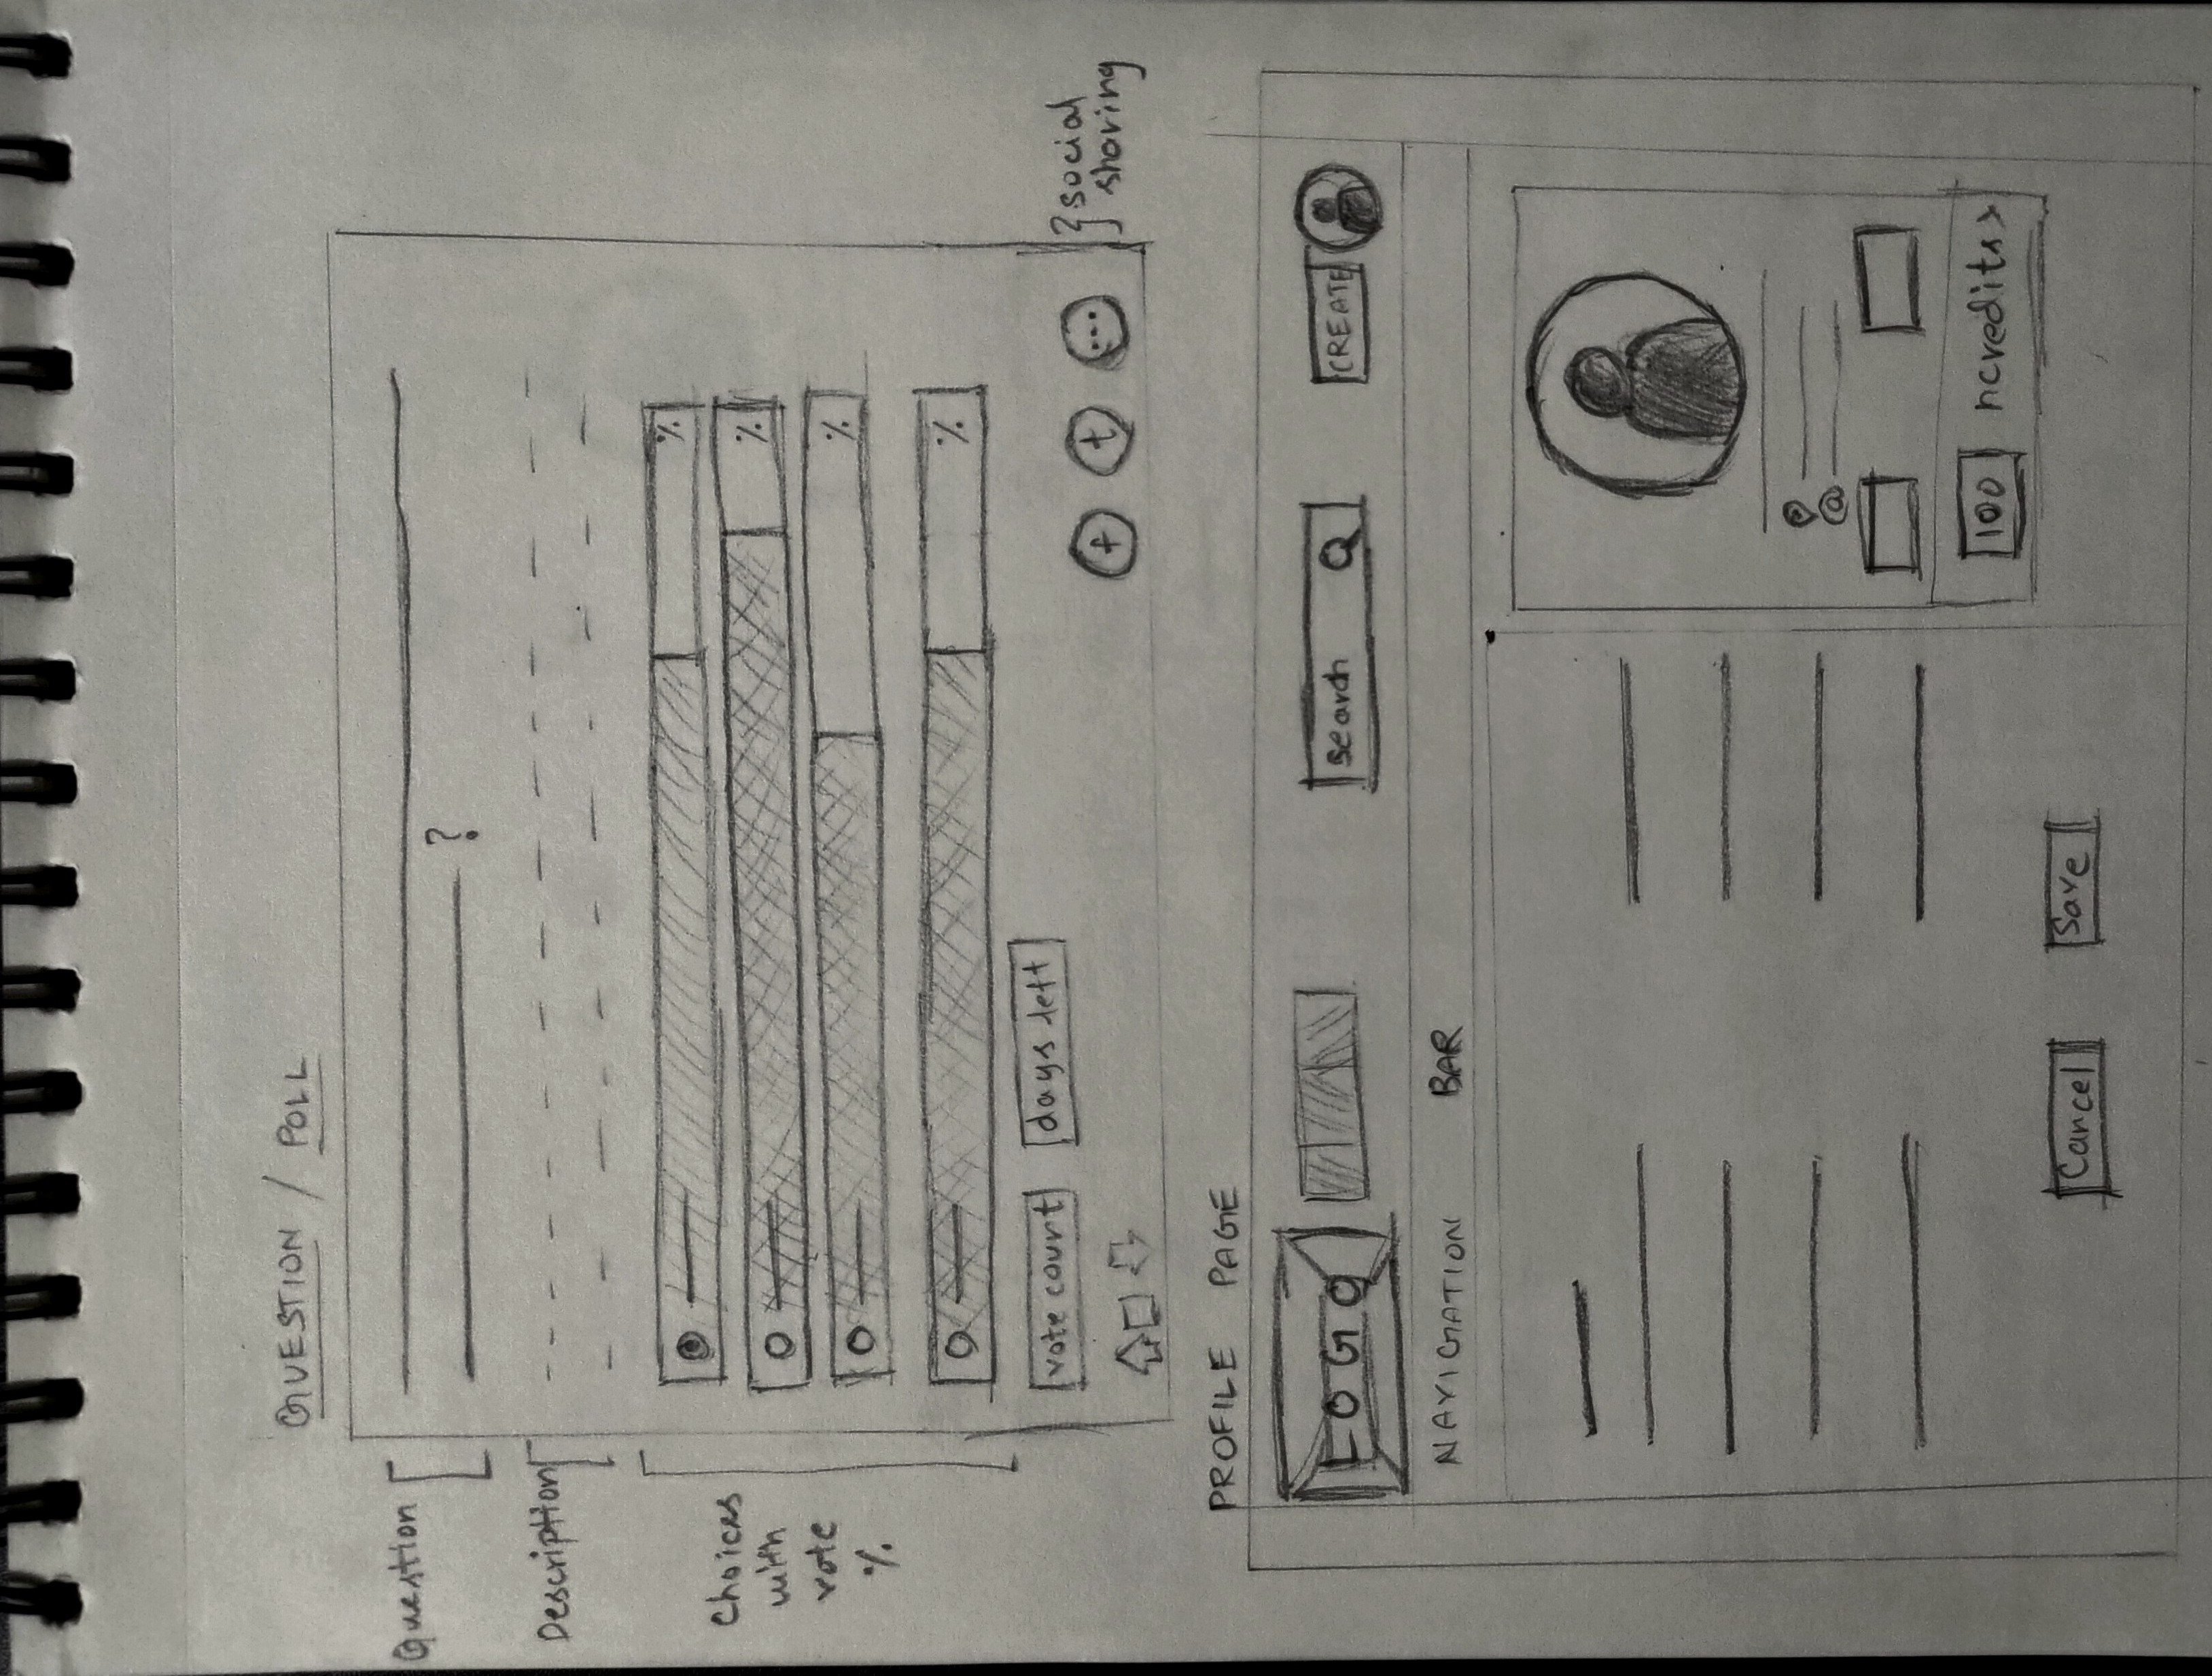 QUESTION / POLL
Question
?
Description
Choices
with
vote
%
%
%
%
%
vote count
days left
f
t
...
social
sharing
PROFILE PAGE
LOGO
search
CREATE
NAVIGATION BAR
@
100 ncredits >
Cancel
Save